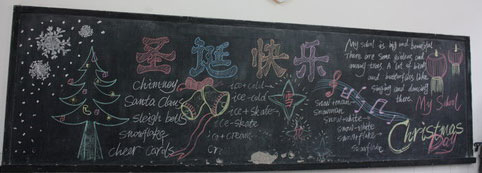 圣诞快乐
chimney
Santa Claus
sleigh bells
snowflake
cheer cards
ice + cold
ice-cold
ice + skate
ice-skate
+ cream
snow + man
snowman
snow + white
snow-white
snowflake
My school is big and beautiful
There are some gardens and
many trees. A lot of birds
and butterflies like
singing and dancing
there.
My School
Christmas
Day